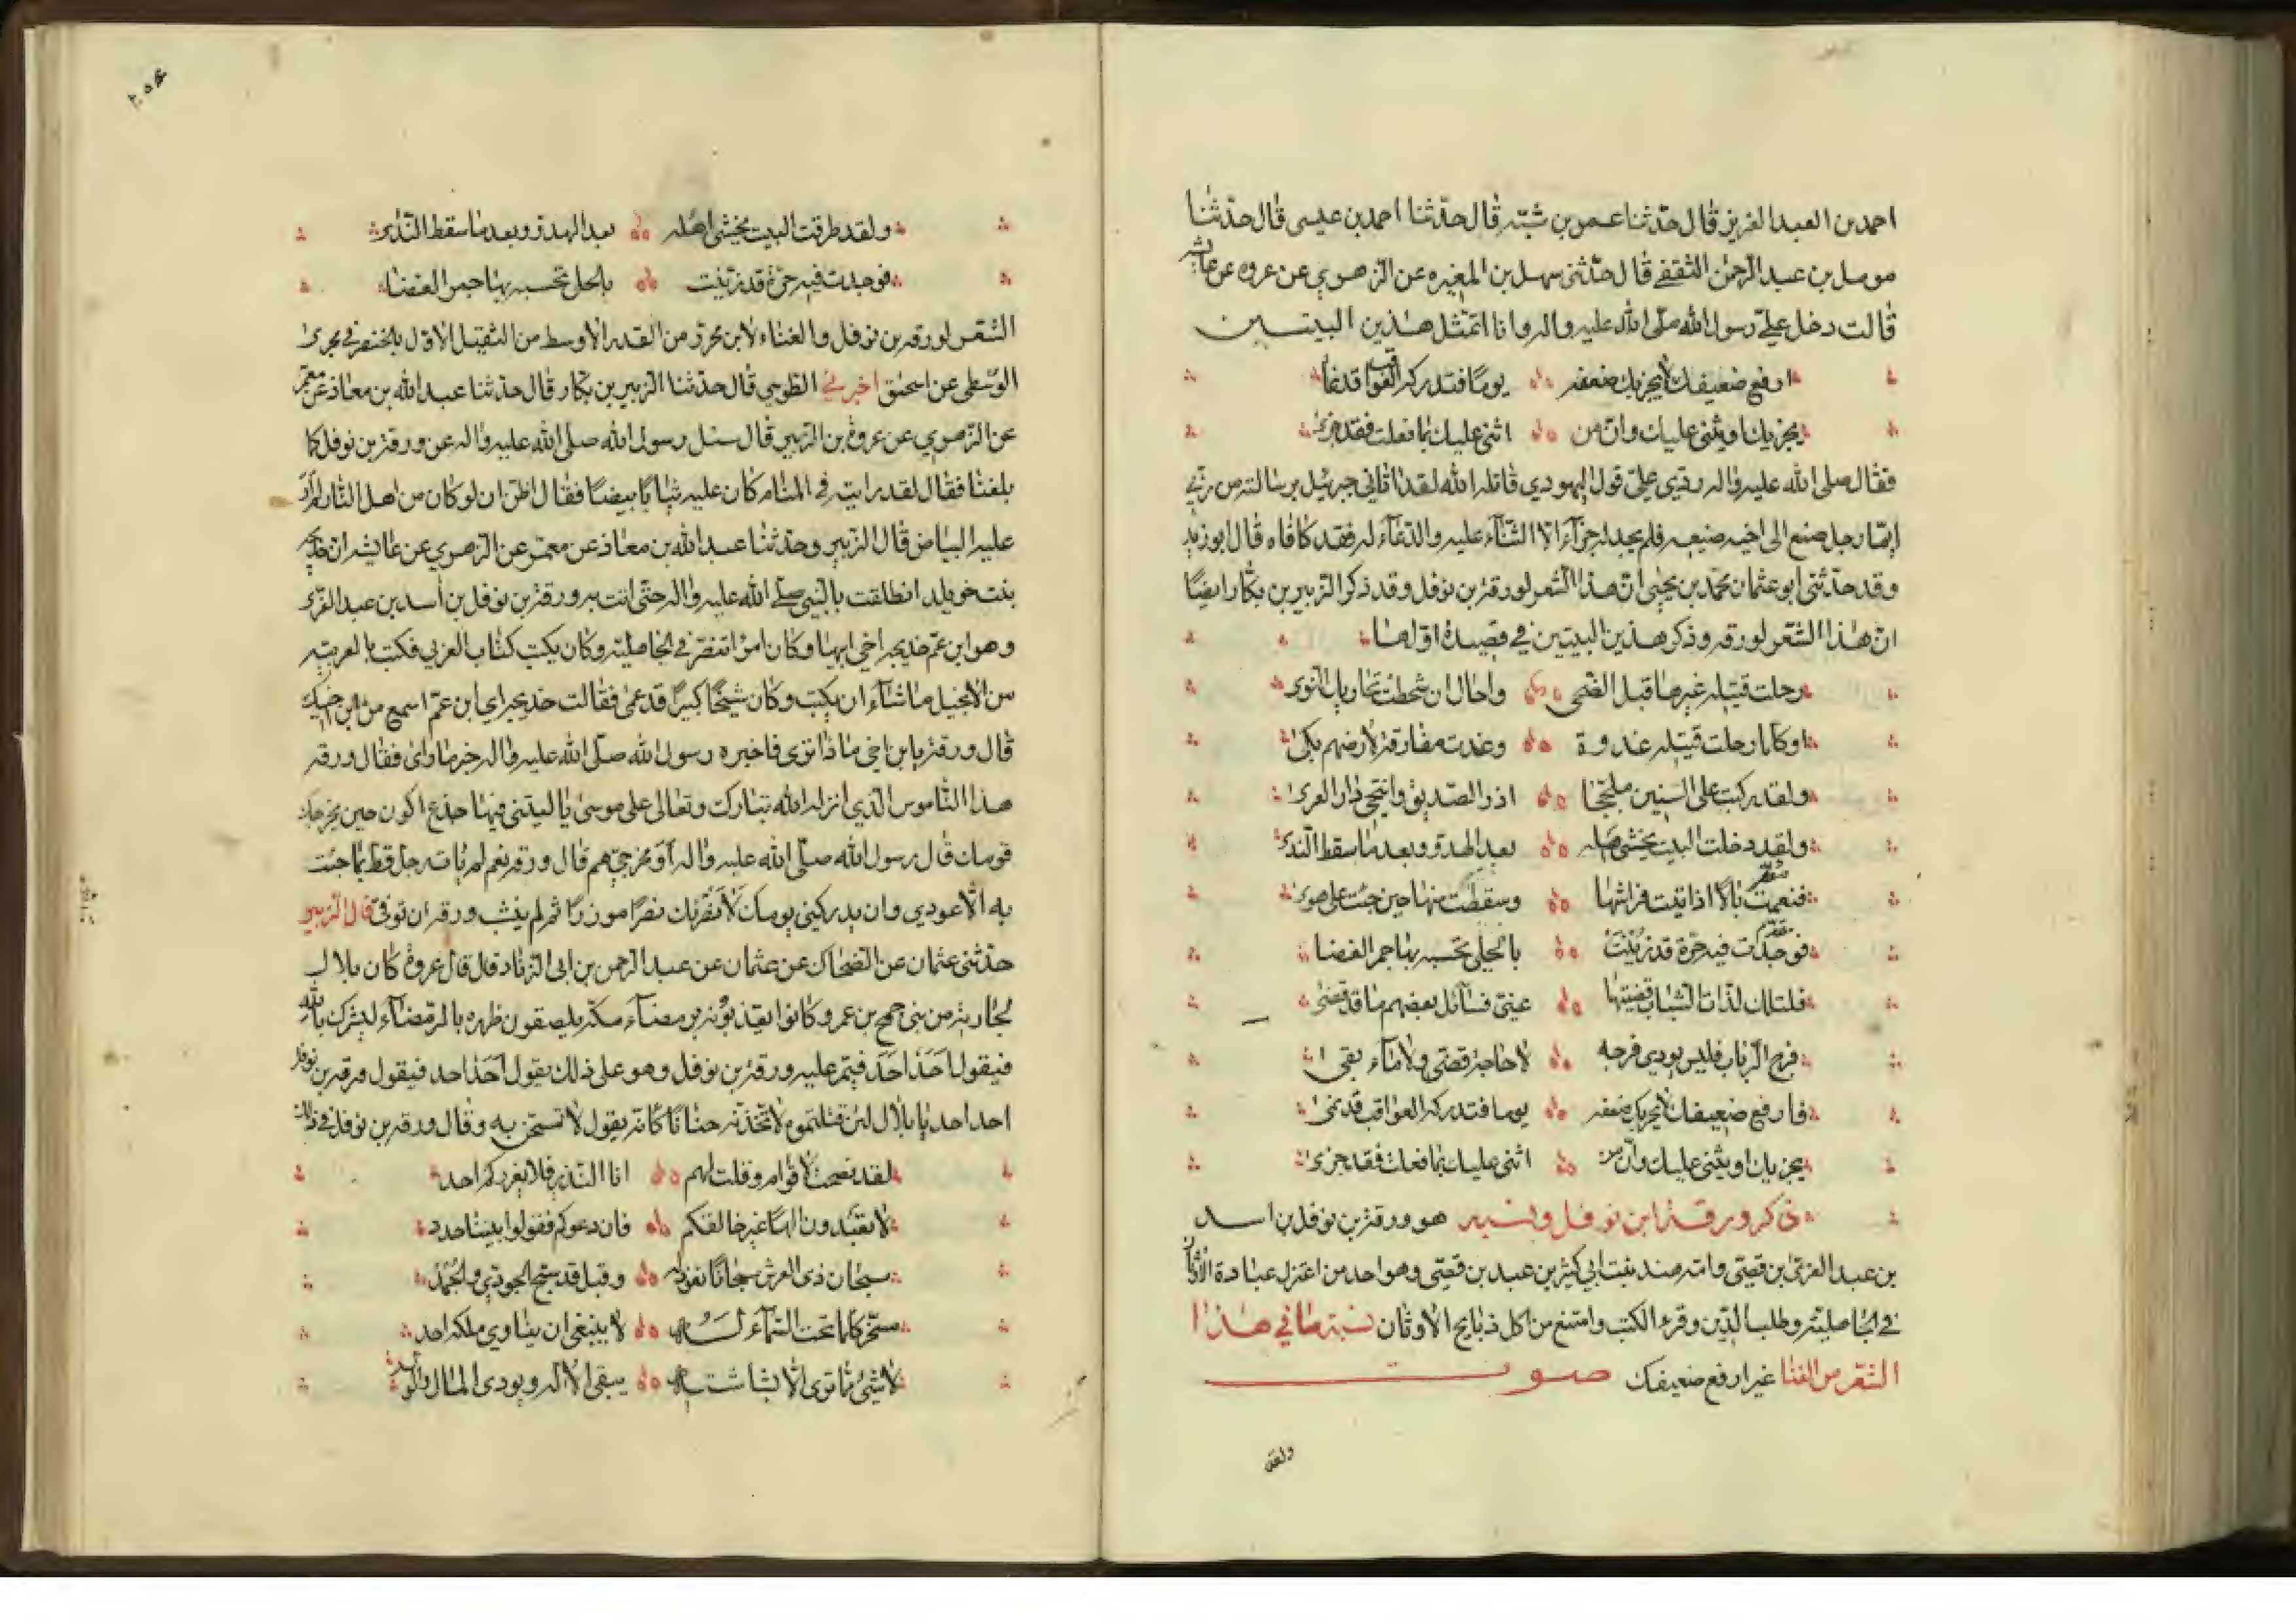 احمد بن العبد العزيز قال حدثنا عمر بن شبّه قال حدّثنا احمد بن عيسى قال حدثنا
مومل بن عبد الرحمن الثقفي قال حدّثني سهل بن المغيره عن الزهري عن عروه عن عائشه
قالت دخل عليّ رسول الله صلّى الله عليه واله وانا اتمثّل هذين البيتـــين
ارفع ضعيفك لا يحزنك ضعفه يومًا فتدركه العواقب قد نما
يجزيك او يثني عليك وان من اثنى عليك بما فعلت فقد جزى
فقال صلى الله عليه واله ردّي عليّ قول اليهودي قاتله الله لقد اتاني جبرئيل برسالة من ربّي
ايّما رجل صنع الى اخيه صنيعه فلم يجد له جزآء الّا الثنآء عليه والدّعآء له فقد كافاه قال ابو زيد
وقد حدّثني ابو عثمان محمّد بن يحيى انّ هذا الشعر لورقة بن نوفل وقد ذكر الزبير بن بكّار ايضًا
انّ هذا الشعر لورقه وذكر هذين البيتين في قصيدة اوّلها
رحلت قتيله عيرها قبل الضّحى واخال ان شحطت تجاريك النّوى
او كلما رحلت قتيله غدوة وغدت مفارقة لارضهم بكى
ولقد ركبت على السّفين ملججا اذر الصّديق وانتحى دار العدى
ولقد دخلت البيت يخشى اهله بعد الهدوّ وبعد ما سقط النّدى
فنعمت بالا اذا تيت فراشها وسقطت منها حين جئت على هوى
فوجدت فيه حرّة قد زيّنت بالحلي تحسبه بها جمر الغضا
فلتلك لذّات الشباب قضيتها عنّي فسائل بعضهم ما قد قضى
فرج الرّباب فليس يودي فرجه لا حاجة قضّى ولا مآء بقى
فارفع ضعيفك لا يحزنك ضعفه يوما فتدركه العواقب قد نمى
يجزيك او يثني عليك وانّ من اثنى عليك بما فعلت فقد جزى
ذكر ورقة ابن نوفل ونسبه هو ورقة بن نوفل بن اسد
بن عبد العزى بن قصّي وامّه هند بنت ابي كثير بن عبد بن قصّي وهو احد من اعتزل عبادة الاوثان
في الجاهليّه وطلب الدّين وقرء الكتب وامتنع من اكل ذبايح الاوثان نسبة ما في هذا
الشعر من الغنا غير ارفع ضعيفك صوت
ولقد
ولقد طرقت البيت يخشى اهله بعد الهدوّ وبعد ما سقط النّدى
فوجدت فيه حرّة قد زيّنت بالحلي تحسبه بها جمر الغضا
الشعر لورقه بن نوفل والغناء لابن محرز من القدر الاوسط من الثقيل الاوّل بالخنصر في مجرى
الوسطى عن اسحق اخبرني الطوسي قال حدثنا الزبير بن بكّار قال حدثنا عبد الله بن معاذ عن معمر
عن الزهري عن عروة بن الزبير قال سئل رسول الله صلى الله عليه واله عن ورقة بن نوفل كما
بلغنا فقال لقد رايته في المنام كان عليه ثيابًا بيضًا فقال اظن ان لو كان من اهل النار لم ار
عليه البياض قال الزبير وحدّثنا عبد الله بن معاذ عن معمر عن الزهري عن عايشه ان خديجه
بنت خويلد انطلقت بالنبي صلى الله عليه واله حتّى اتت به ورقة بن نوفل بن أسد بن عبد العزى
وهو ابن عمّ خديجه اخي ابيها وكان امرًا تنصّر في الجاهليّه وكان يكتب كتاب العربي فكتب بالعربيّه
من الانجيل ما شاء ان يكتب وكان شيخًا كبيرًا قد عمى فقالت خديجه اي ابن عمّ اسمع من ابن اخيك
قال ورقة يا بن اخي ماذا ترى فاخبره رسول الله صلّى الله عليه واله خبر ما راى فقال ورقه
هذا الناموس الّذي انزله الله تبارك وتعالى على موسى يا ليتني فيها جذع اكون حين يخرجك
قومك قال رسول الله صلّى الله عليه واله او مخرجيّ هم قال ورقه نعم لم يات رجل قط بما جئت
به الّا عودي وان يدركني يومك لأنصُرنك نصرًا موزرًا ثم لم ينشب ورقه ان توفّي قال الزبير
حدّثني عثمان عن الضحاك عن عثمان عن عبد الرحمن بن ابي الزناد قال قال عروة كان بلال
لجارية من بني جمح بن عمرو وكانوا يعذّبونه برمضاء مكة يلصقون ظهره بالرمضاء ليشرك بالله
فيقول اَحَدٌ احَد فيمر عليه ورقة بن نوفل وهو على ذلك يقول احَد احد فيقول ورقه بن نوفل
احد احد يا بلال لئن قتلتموه لاتّخذنّه حنانًا كانّه يقول لاتمسّحن به وقال ورقه بن نوفل في ذلك
لقد نصحت لاقوام وقلت لهم انا النّذير فلا يغرركم احد
لا تعبّدون الهًا غير خالقكم فان دعوكم فقولوا بيننا حدد
سبحان ذي العرش سبحانًا نعوذ به وقبل قد سبّح الجودي والجُمُد
مسخّر كلما تحت السمآء له لا ينبغي ان يناوي ملكه احد
لا شئ مما ترى الّا بشاشته يبقى الاله ويودي المال والولد